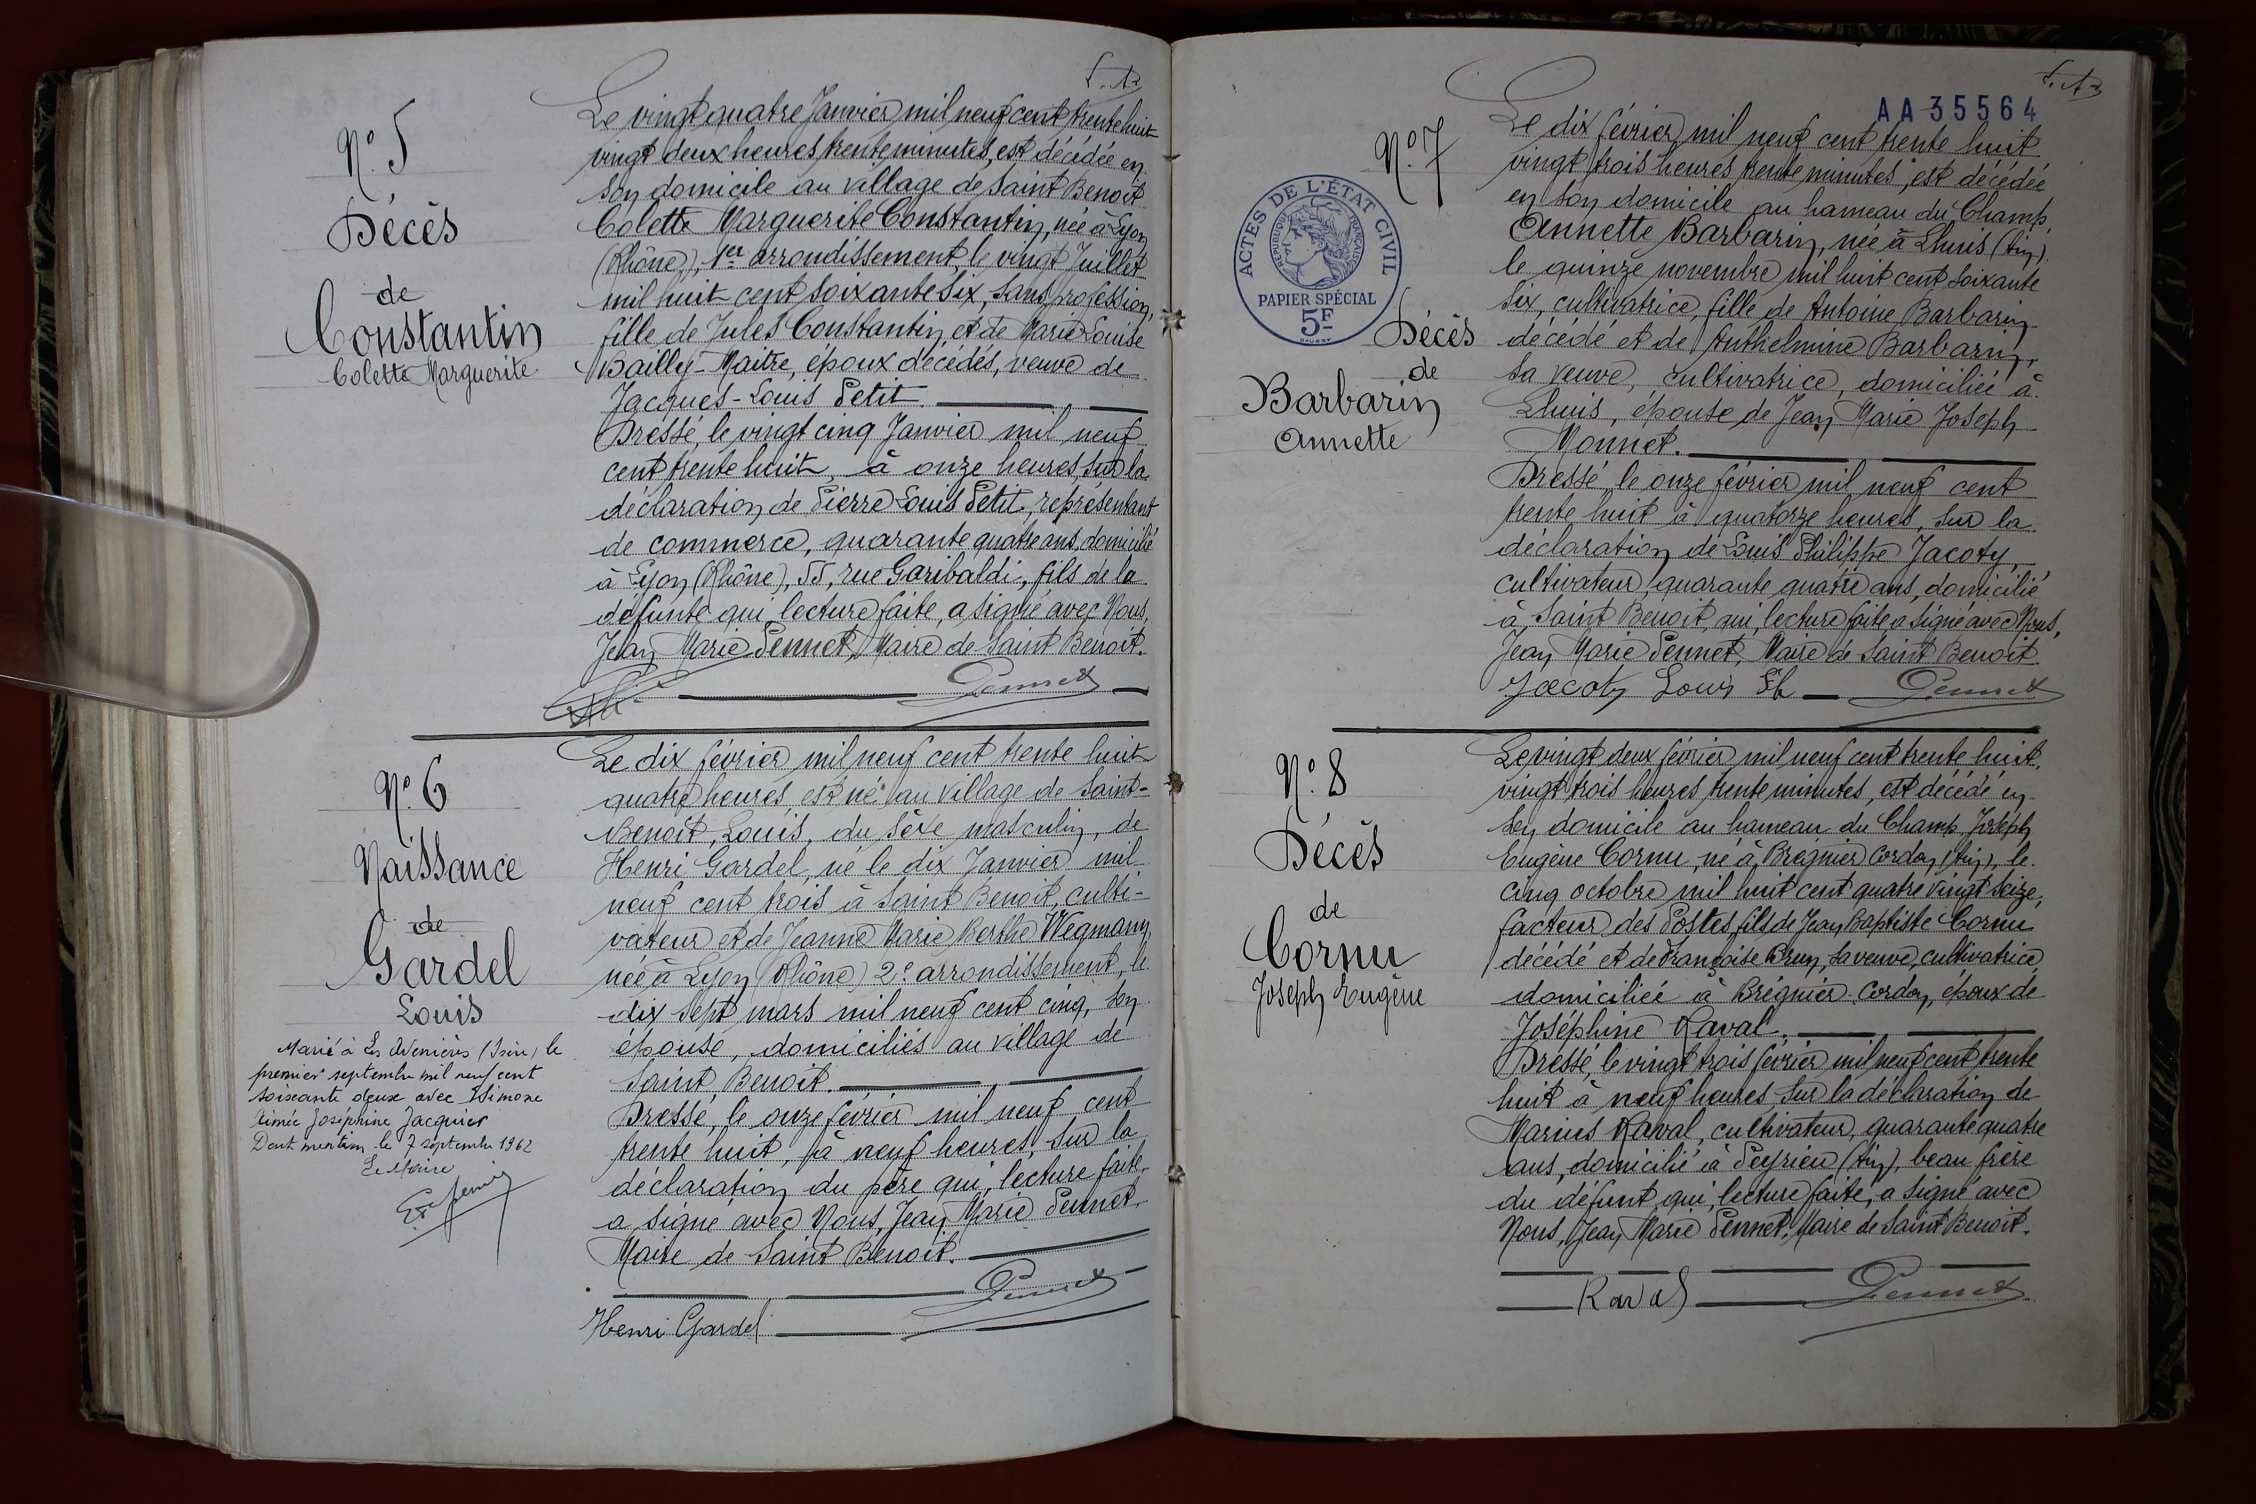 N° 5
Décès
de
Constantin
Colette Marguerite
Le vingt quatre Janvier mil neuf cent trente huit
vingt deux heures trente minutes, est décédée en
son domicile au village de Saint Benoit
Colette Marguerite Constantin, née à Lyon
(Rhône), 1er arrondissement, le vingt Juillet
mil huit cent soixante six, sans profession,
fille de Jules Constantin et de Marie Louise
Bailly-Maitre, époux décédés, veuve de
Jacques-Louis Petit.
Dressé, le vingt cinq Janvier mil neuf
cent trente huit, à onze heures, sur la
déclaration de Pierre Louis Petit, représentant
de commerce, quarante quatre ans, domicilié
à Lyon (Rhône), 55, rue Garibaldi, fils de la
défunte qui, lecture faite, a signé avec Nous,
Jean Marie Pennet, Maire de Saint Benoit.
Pennet
N° 6
Naissance
de
Gardel
Louis
Marié à Les Avenières (Isère) le
premier septembre mil neuf cent
soixante deux avec Simone
Aimée Joséphine Jacquier
Dont mention le 7 septembre 1962
Le Maire
Le dix février mil neuf cent trente huit
quatre heures, est né au village de Saint-
Benoit, Louis, du sexe masculin, de
Henri Gardel, né le dix Janvier mil
neuf cent trois à Saint Benoit, culti-
vateur et de Jeanne Marie Berthe Wegmann,
née à Lyon (Rhône) 2e arrondissement, le
dix sept mars mil neuf cent cinq, son
épouse, domiciliés au village de
Saint Benoit.
Dressé, le onze février mil neuf cent
trente huit, à neuf heures, sur la
déclaration du père qui, lecture faite,
a signé avec Nous, Jean Marie Pennet,
Maire de Saint Benoit.
Pennet
Henri Gardel
AA 35564
N° 7
ACTES DE L'ÉTAT CIVIL
RÉPUBLIQUE FRANÇAISE
PAPIER SPÉCIAL
5F
Décès
de
Barbarin
Annette
Le dix février mil neuf cent trente huit
vingt trois heures trente minutes, est décédée
en son domicile au hameau du Champ,
Annette Barbarin, née à Lhuis (Ain)
le quinze novembre mil huit cent soixante
six, cultivatrice, fille de Antoine Barbarin
décédé et de Anthelmine Barbarin,
sa veuve, cultivatrice, domiciliée à
Lhuis, épouse de Jean Marie Joseph
Monnet.
Dressé, le onze février mil neuf cent
trente huit à quatorze heures, sur la
déclaration de Louis Philippe Jacoty,
cultivateur, quarante quatre ans, domicilié
à Saint Benoit, qui, lecture faite a signé avec Nous,
Jean Marie Pennet, Maire de Saint Benoit.
Jacoty Louis Ph Pennet
N° 8
Décès
de
Cornu
Joseph Eugène
Le vingt deux février mil neuf cent trente huit,
vingt trois heures trente minutes, est décédé en
son domicile au hameau du Champ, Joseph
Eugène Cornu, né à Brégnier Cordon (Ain), le
cinq octobre mil huit cent quatre vingt seize,
facteur des Postes, fils de Jean Baptiste Cornu
décédé et de Françoise Brun, sa veuve, cultivatrice
domiciliée à Brégnier-Cordon, époux de
Joséphine Raval.
Dressé, le vingt trois février mil neuf cent trente
huit à neuf heures, sur la déclaration de
Marius Raval, cultivateur, quarante quatre
ans, domicilié à Peyrieu (Ain), beau frère
du défunt qui, lecture faite, a signé avec
Nous, Jean Marie Pennet, Maire de Saint Benoit.
Raval Pennet